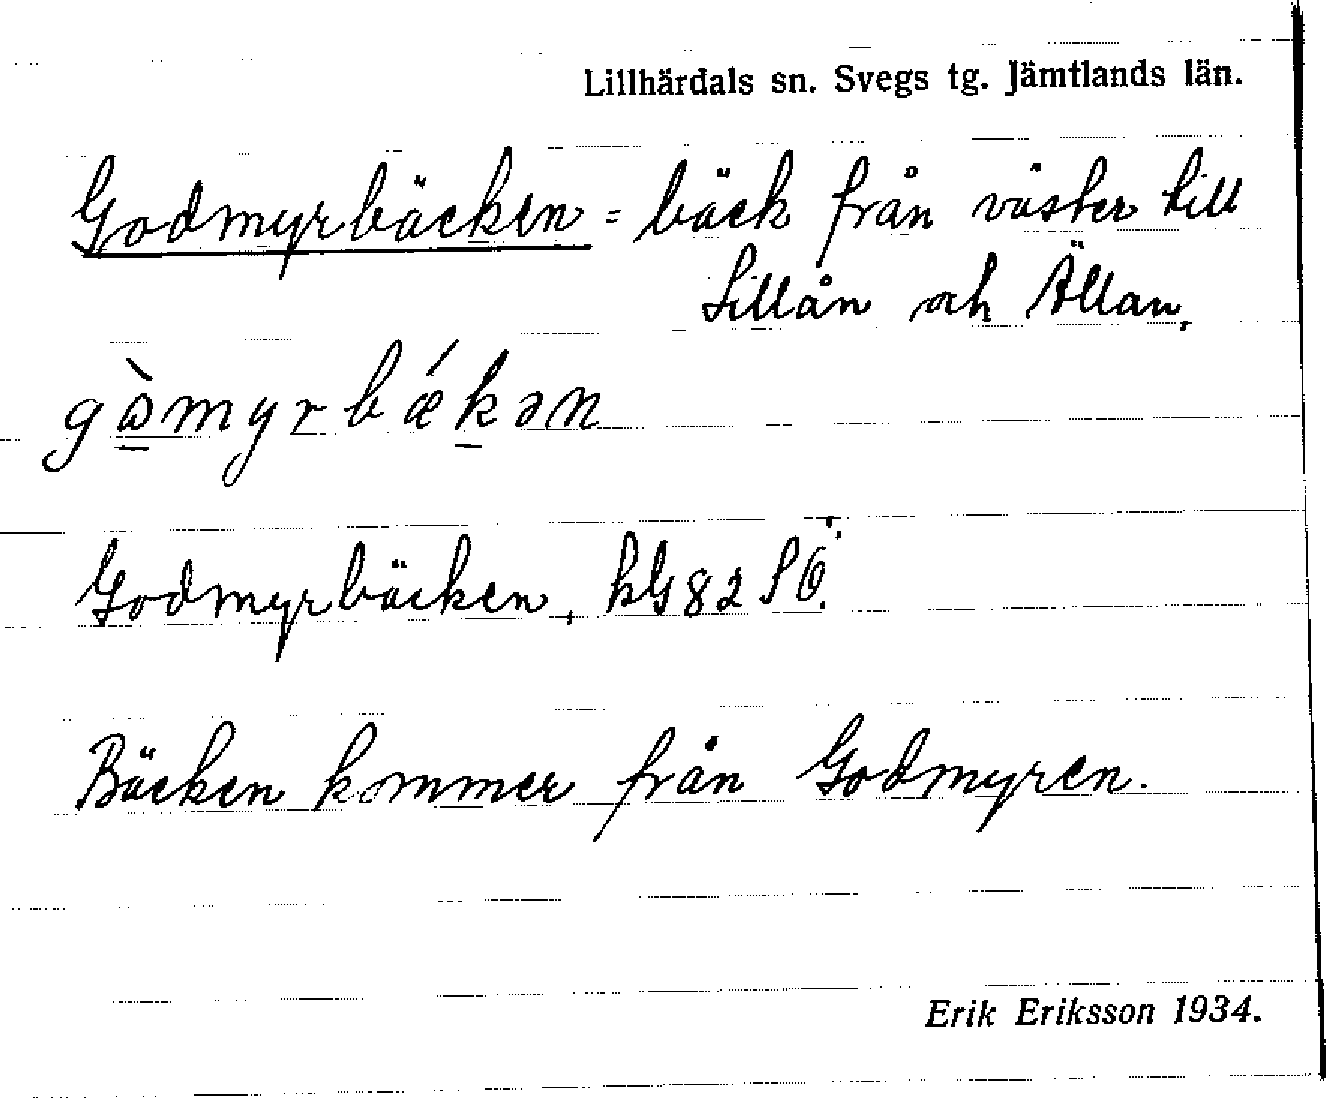 Lillhärdals sn. Svegs tg. Jämtlands län.
Godmyrbäcken = bäck från väster till
Lillån och Ällan.
gòmyrbǽkən
Godmyrbäcken, kG 82 SÖ.
Bäcken kommer från Godmyren.
Erik Eriksson 1934.